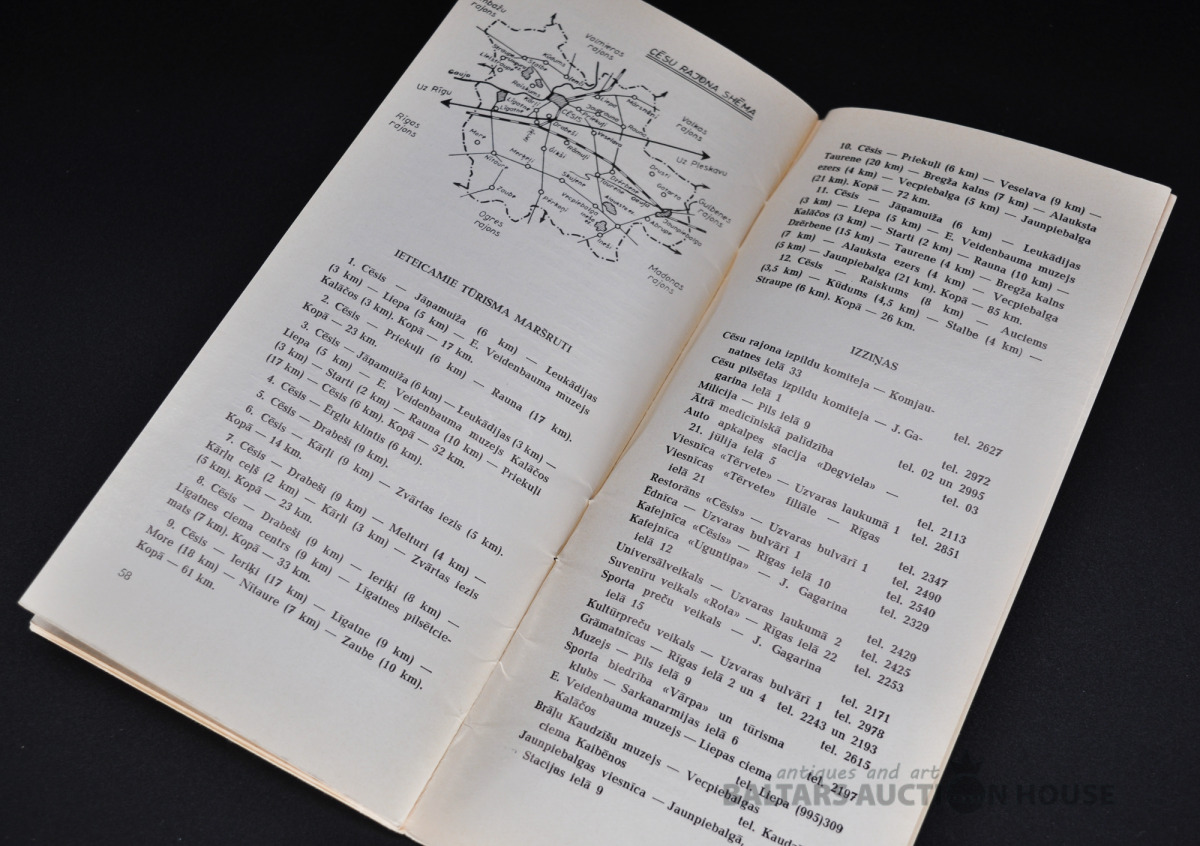 CĒSU RAJONA SHĒMA
Valmieras
rajons
Uz Rīgu
Rīgas
rajons
Valkas
rajons
Uz Pleskavu
Gulbenes
rajons
Ogres
rajons
Madonas
rajons
Gauja
Līgatne
CĒSIS
Drabeši
More
Nītaure
Zaube
Skujene
Taurene
Dzērbene
Vecpiebalga
Jaunpiebalga
IETEICAMIE TŪRISMA MARŠRUTI
1. Cēsis — Jāņamuiža (6 km) — Leukādijas
(3 km) — Liepa (5 km) — E. Veidenbauma muzejs
Kalāčos (3 km). Kopā — 17 km.
2. Cēsis — Priekuļi (6 km) — Rauna (17 km).
Kopā — 23 km.
3. Cēsis — Jāņamuiža (6 km) — Leukādijas (3 km) —
Liepa (5 km) — E. Veidenbauma muzejs Kalāčos
(3 km) — Starti (2 km) — Rauna (10 km) — Priekuļi
(17 km) — Cēsis (6 km). Kopā — 52 km.
4. Cēsis — Ērgļu klintis (6 km).
5. Cēsis — Drabeši (9 km).
6. Cēsis — Kārļi (9 km) — Zvārtas iezis (5 km).
Kopā — 14 km.
7. Cēsis — Drabeši (9 km) — Melturi (4 km) —
Kārļu ceļš (2 km) — Kārļi (3 km) — Zvārtas iezis
(5 km). Kopā — 23 km.
8. Cēsis — Drabeši (9 km) — Ieriķi (8 km) —
Līgatnes ciema centrs (9 km) — Līgatnes pilsētcie-
mats (7 km). Kopā — 33 km.
9. Cēsis — Ieriķi (17 km) — Līgatne (9 km) —
More (18 km) — Nītaure (7 km) — Zaube (10 km).
Kopā — 61 km.
58
10. Cēsis — Priekuļi (6 km) — Veselava (9 km) —
Taurene (20 km) — Bregža kalns (7 km) — Alauksta
ezers (4 km) — Vecpiebalga (5 km) — Jaunpiebalga
(21 km). Kopā — 72 km.
11. Cēsis — Jāņamuiža (6 km) — Leukādijas
(3 km) — Liepa (5 km) — E. Veidenbauma muzejs
Kalāčos (3 km) — Starti (2 km) — Rauna (10 km) —
Dzērbene (15 km) — Taurene (4 km) — Bregža kalns
(7 km) — Alauksta ezers (4 km) — Vecpiebalga
(5 km) — Jaunpiebalga (21 km). Kopā — 85 km.
12. Cēsis — Raiskums (8 km) — Auciems
(3,5 km) — Kūdums (4,5 km) — Stalbe (4 km) —
Straupe (6 km). Kopā — 26 km.
IZZIŅAS
Cēsu rajona izpildu komiteja — Komjau-
natnes ielā 33 tel. 2627
Cēsu pilsētas izpildu komiteja — J. Ga-
garina ielā 1 tel. 2972
Milicija — Pils ielā 9 tel. 02 un 2995
Ātrā medicīniskā palīdzība tel. 03
Auto apkalpes stacija «Degviela» —
21. jūlija ielā 5 tel. 2113
Viesnīca «Tērvete» — Uzvaras laukumā 1 tel. 2851
Viesnīcas «Tērvete» filiāle — Rīgas
ielā 21 tel. 2347
Restorāns «Cēsis» — Uzvaras bulvārī 1 tel. 2490
Ēdnīca — Uzvaras bulvārī 1 tel. 2540
Kafejnīca «Cēsis» — Rīgas ielā 10 tel. 2329
Kafejnīca «Uguntiņa» — J. Gagarina
ielā 12 tel. 2429
Universālveikals — Uzvaras laukumā 2 tel. 2425
Suvenīru veikals «Rota» — Rīgas ielā 22 tel. 2253
Sporta preču veikals — J. Gagarina
ielā 15 tel. 2171
Kultūrpreču veikals — Uzvaras bulvārī 1 tel. 2978
Grāmatnīcas — Rīgas ielā 2 un 4 tel. 2243 un 2193
Muzejs — Pils ielā 9 tel. 2615
Sporta biedrība «Vārpa» un tūrisma
klubs — Sarkanarmijas ielā 6 tel. 2197
E. Veidenbauma muzejs — Liepas ciema
Kalāčos tel. Liepa (995)309
Brāļu Kaudzīšu muzejs — Vecpiebalgas
ciema Kaibēnos tel. Kaudz
Jaunpiebalgas viesnīca — Jaunpiebalgā,
Stacijas ielā 9
antiques and art
BALTARS AUCTION HOUSE